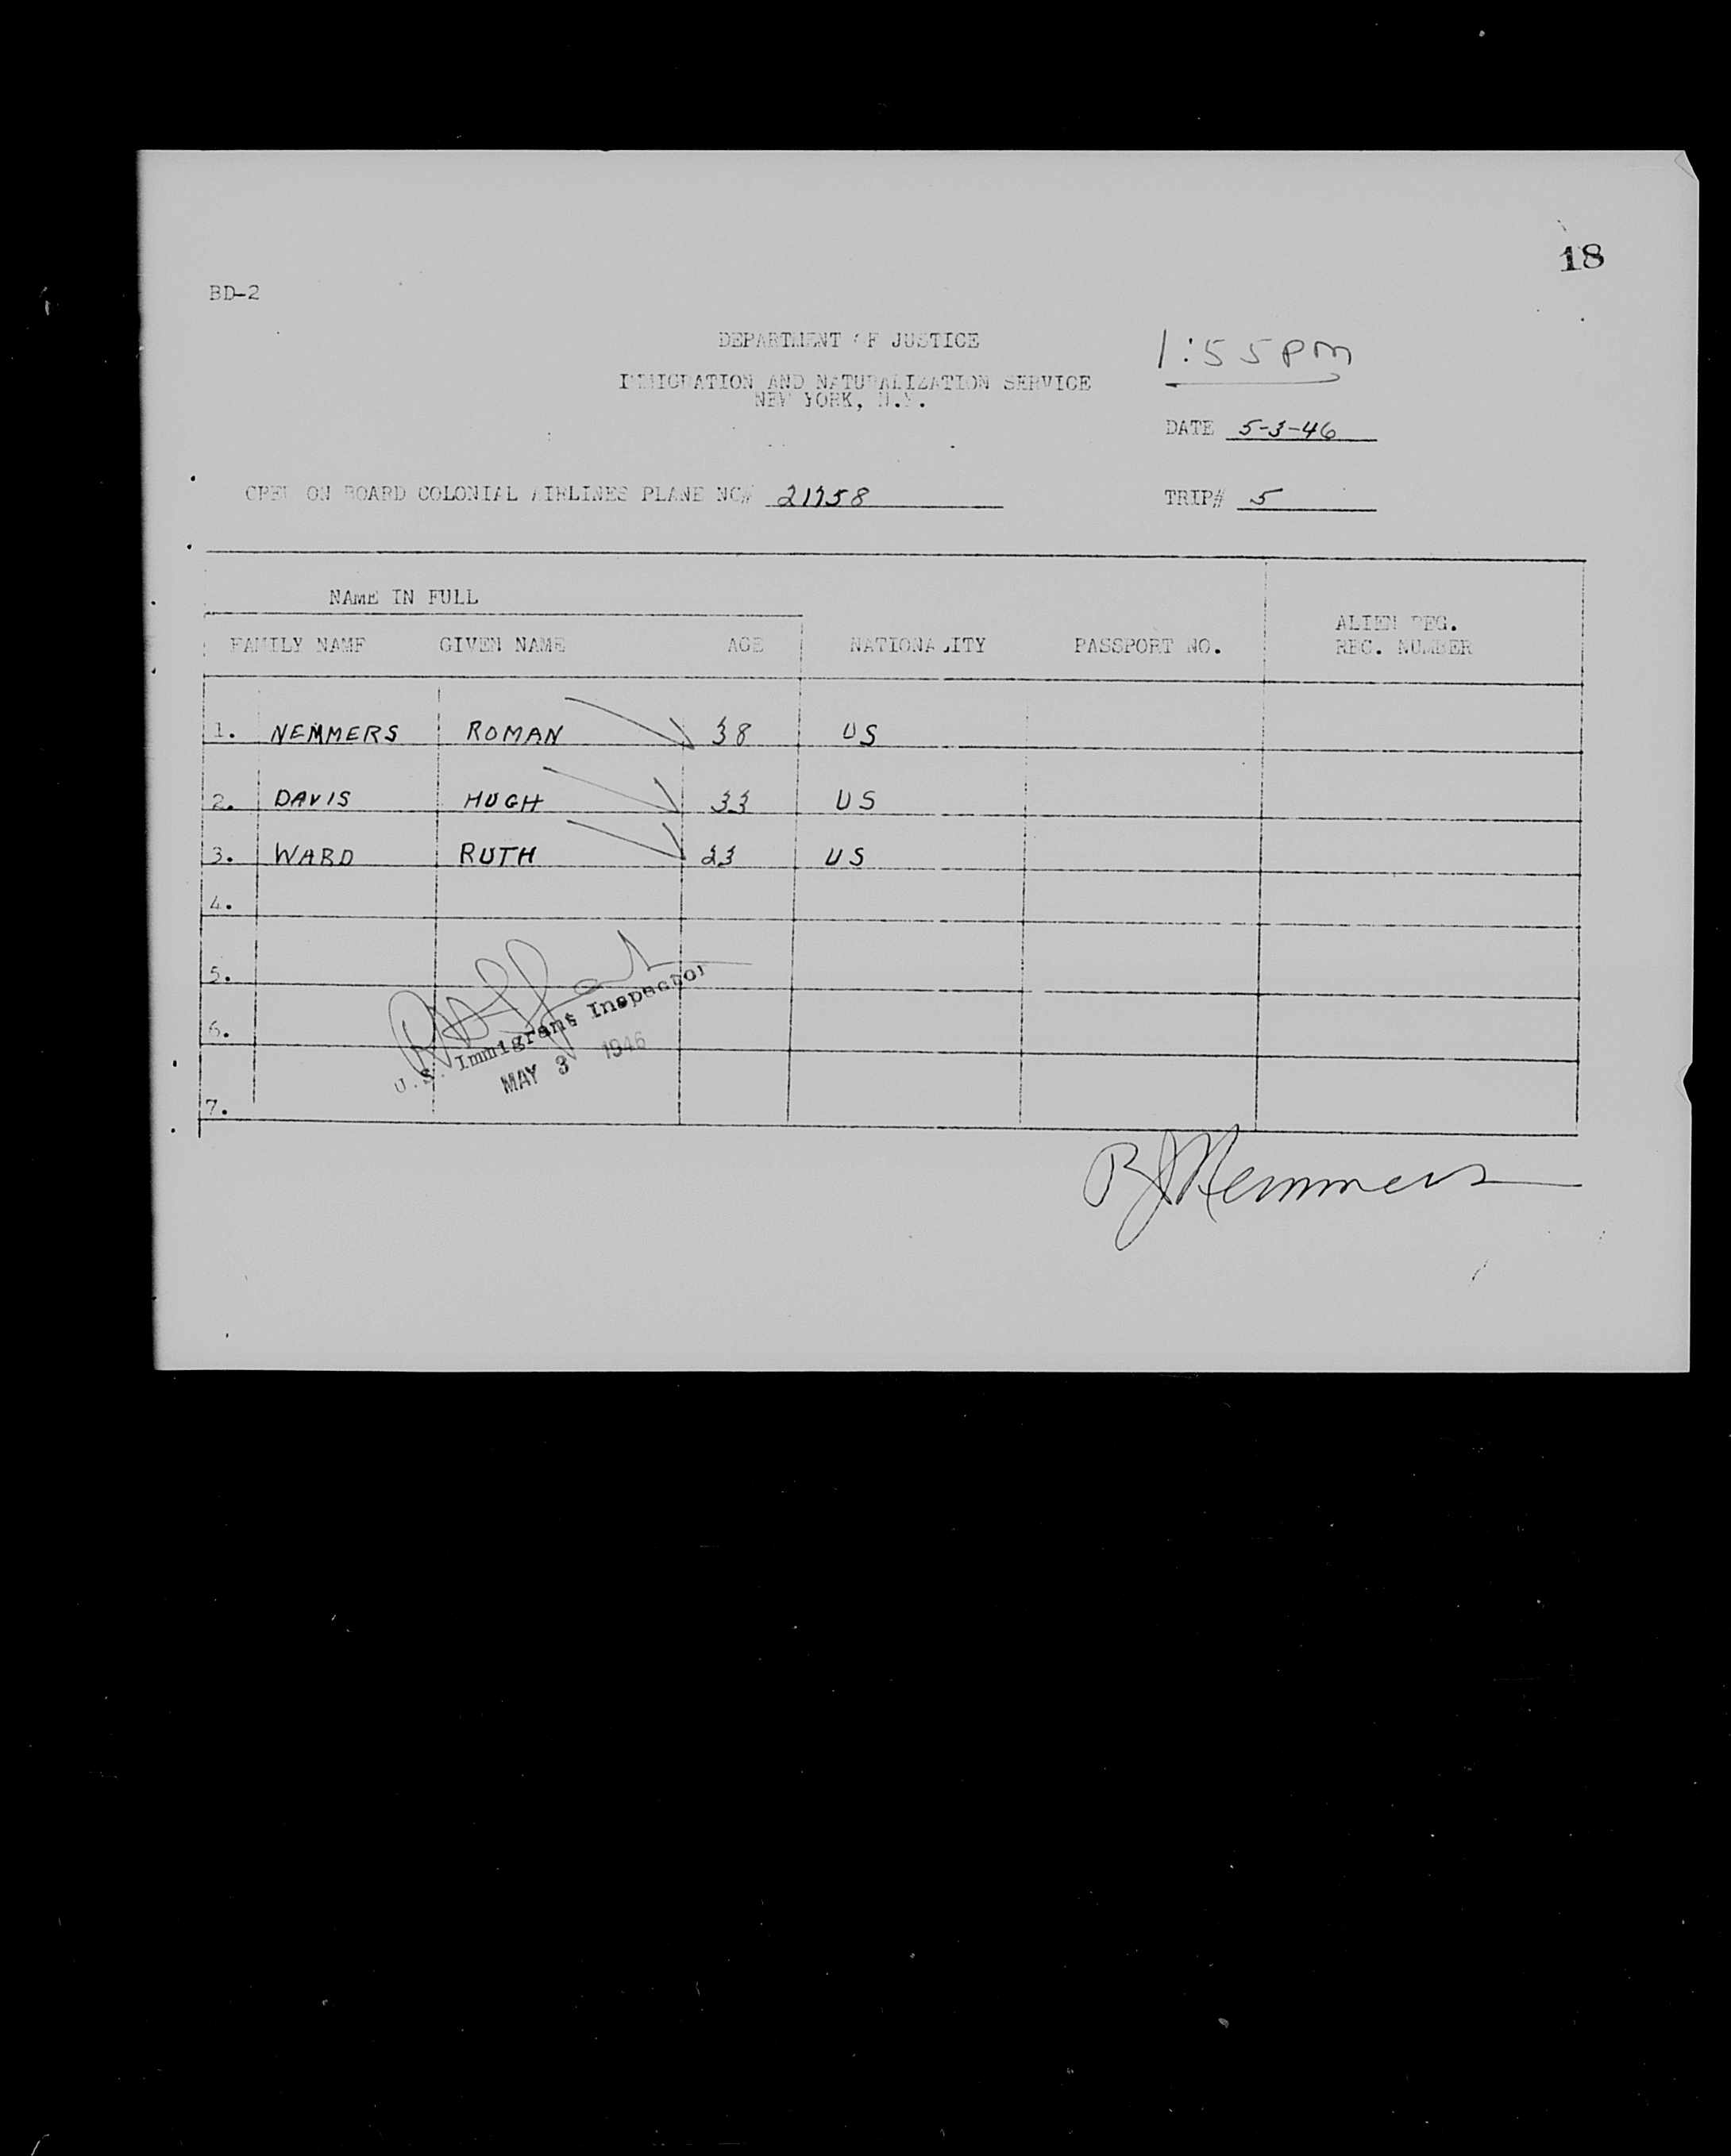 18
BD-2
DEPARTMENT OF JUSTICE
1:55PM
IMMIGRATION AND NATURALIZATION SERVICE
NEW YORK, N.Y.
DATE 5-3-46
CREW ON BOARD COLONIAL AIRLINES PLANE NC#
TRIP# 5
NAME IN FULL
ALIEN REG.
FAMILY NAME GIVEN NAME AGE NATIONALITY PASSPORT NO. REC. NUMBER
1. NEMMERS ROMAN 38 US
2. DAVIS HUGH 33 US
3. WARD RUTH 23 US
4.
5.
6.
U.S. Immigrant Inspector
MAY 3 1946
7.
RJ Nemmers